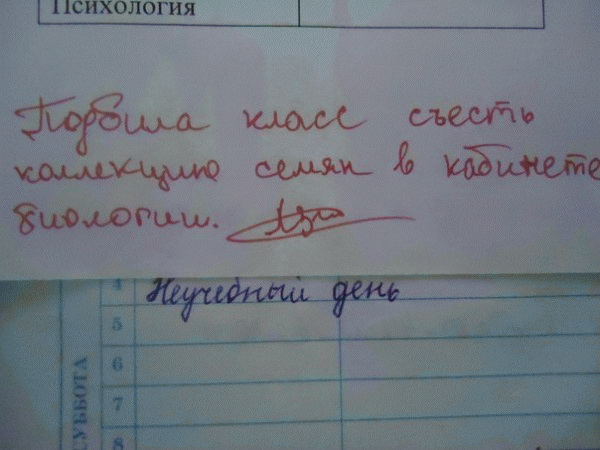 Психология
Подбила класс съесть
коллекцию семян в кабинете
биологии.
4 Неучебный день
5
6
7
8
СУББОТА